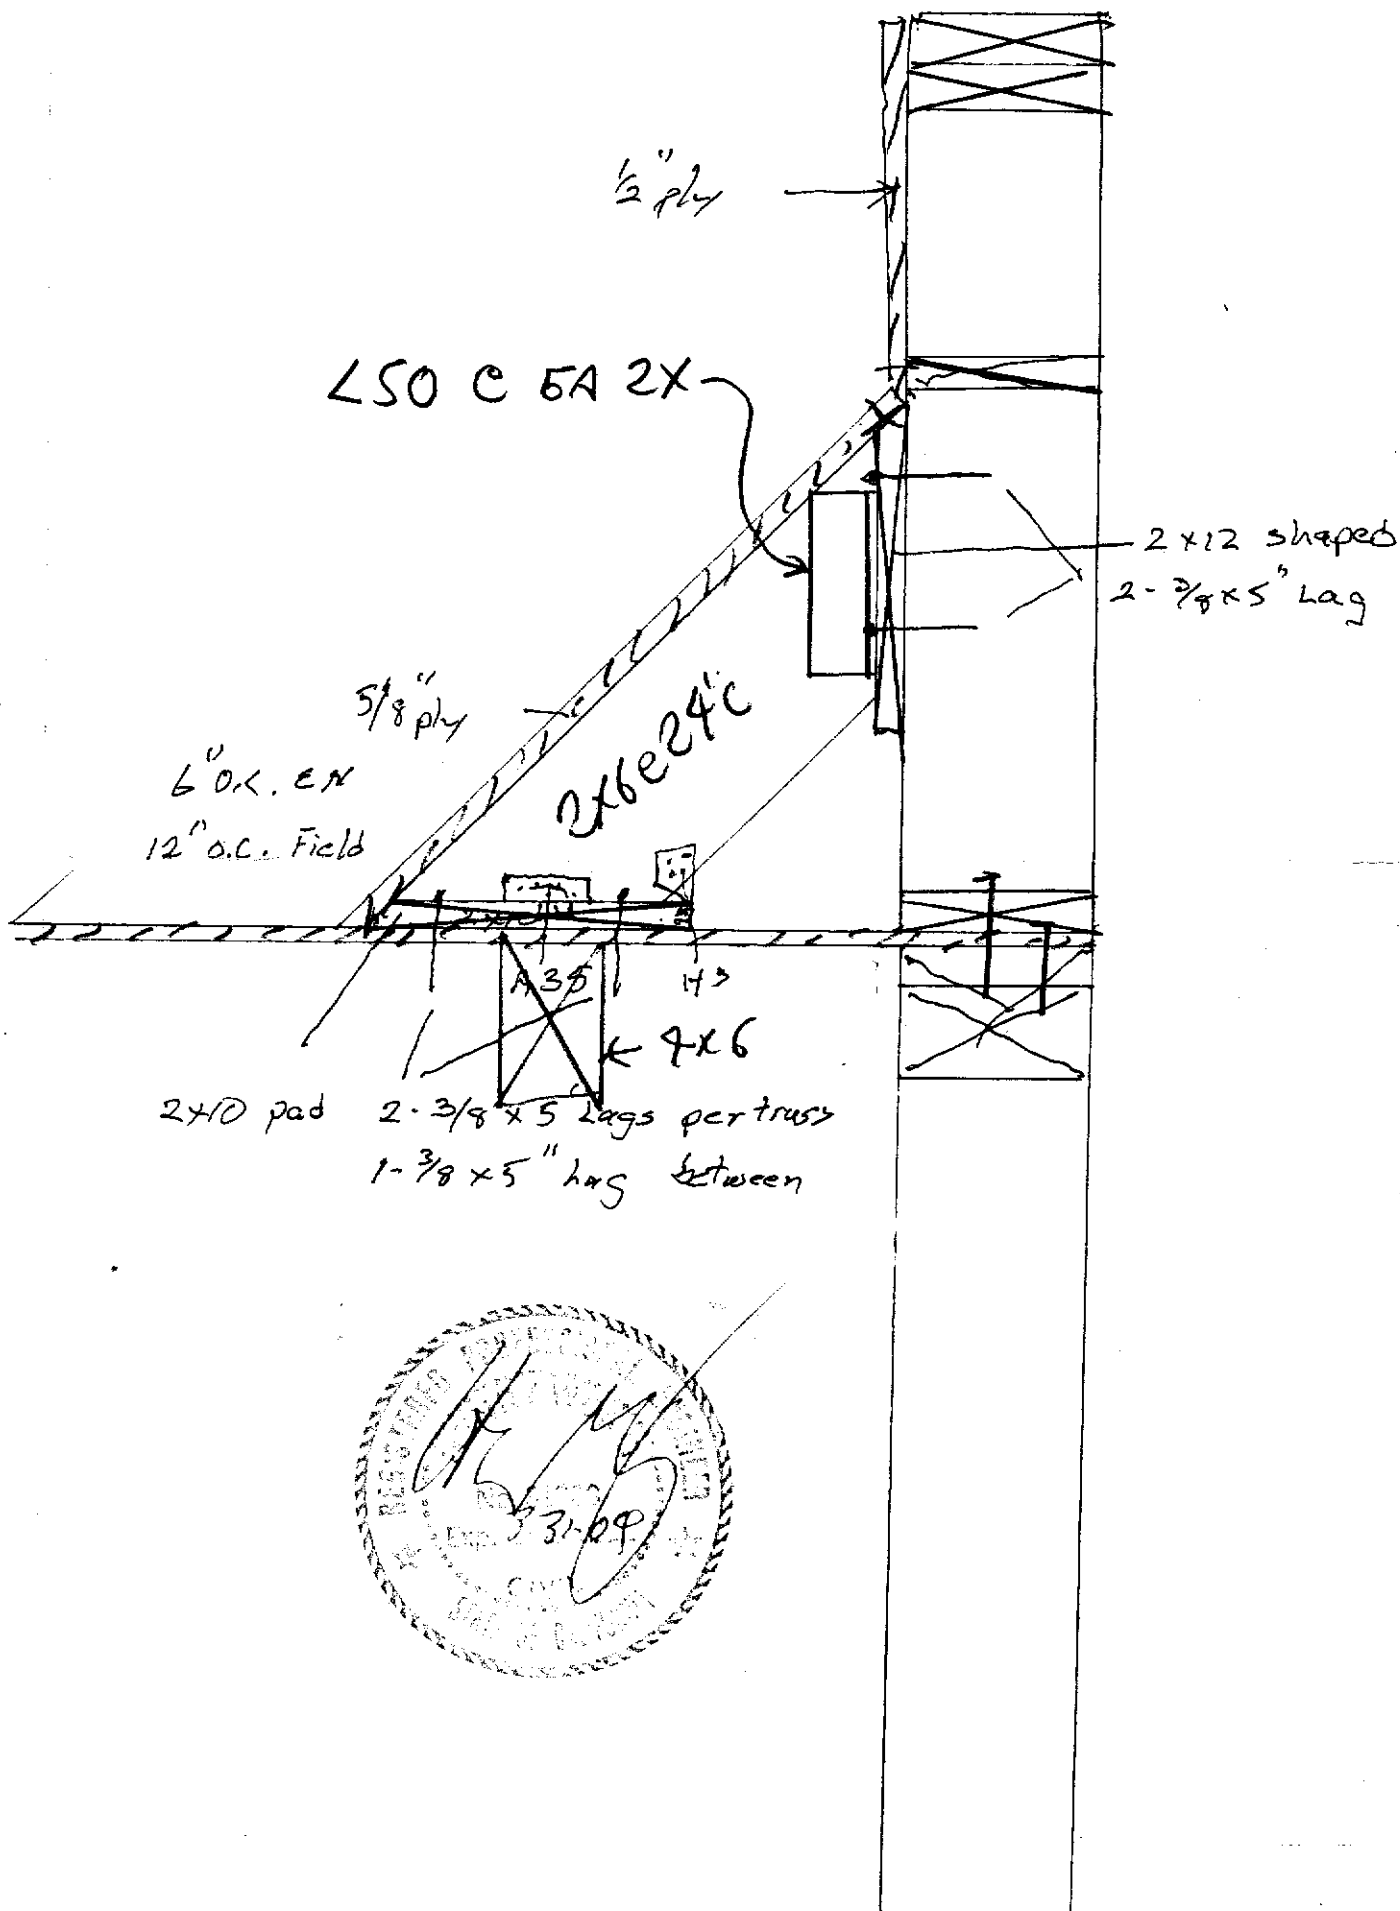 1/2" ply
L50 @ EA 2X
2 x 12 shaped
2 - 3/8 x 5" Lag
5/8" ply
2x6 @ 24" C
6" O.C. EN
12" O.C. Field
2x10
A35
H3
4x6
2x10 pad
2 - 3/8 x 5 Lags per truss
1 - 3/8 x 5" Lag between
REGISTERED PROFESSIONAL ENGINEER
Exp. 3-31-09
CIVIL
STATE OF